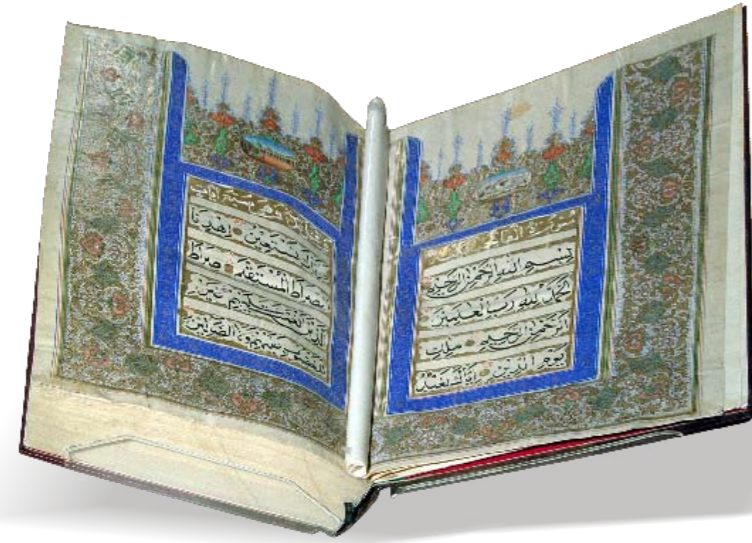 سورة الفاتحة
بسم الله الرحمن الرحيم
الحمد لله رب العلمين
الرحمن الرحيم ملك
يوم الدين اياك نعبد
واياك نستعين اهدنا
الصراط المستقيم صراط
الذين انعمت عليهم غير
المغضوب عليهم ولا الضالين